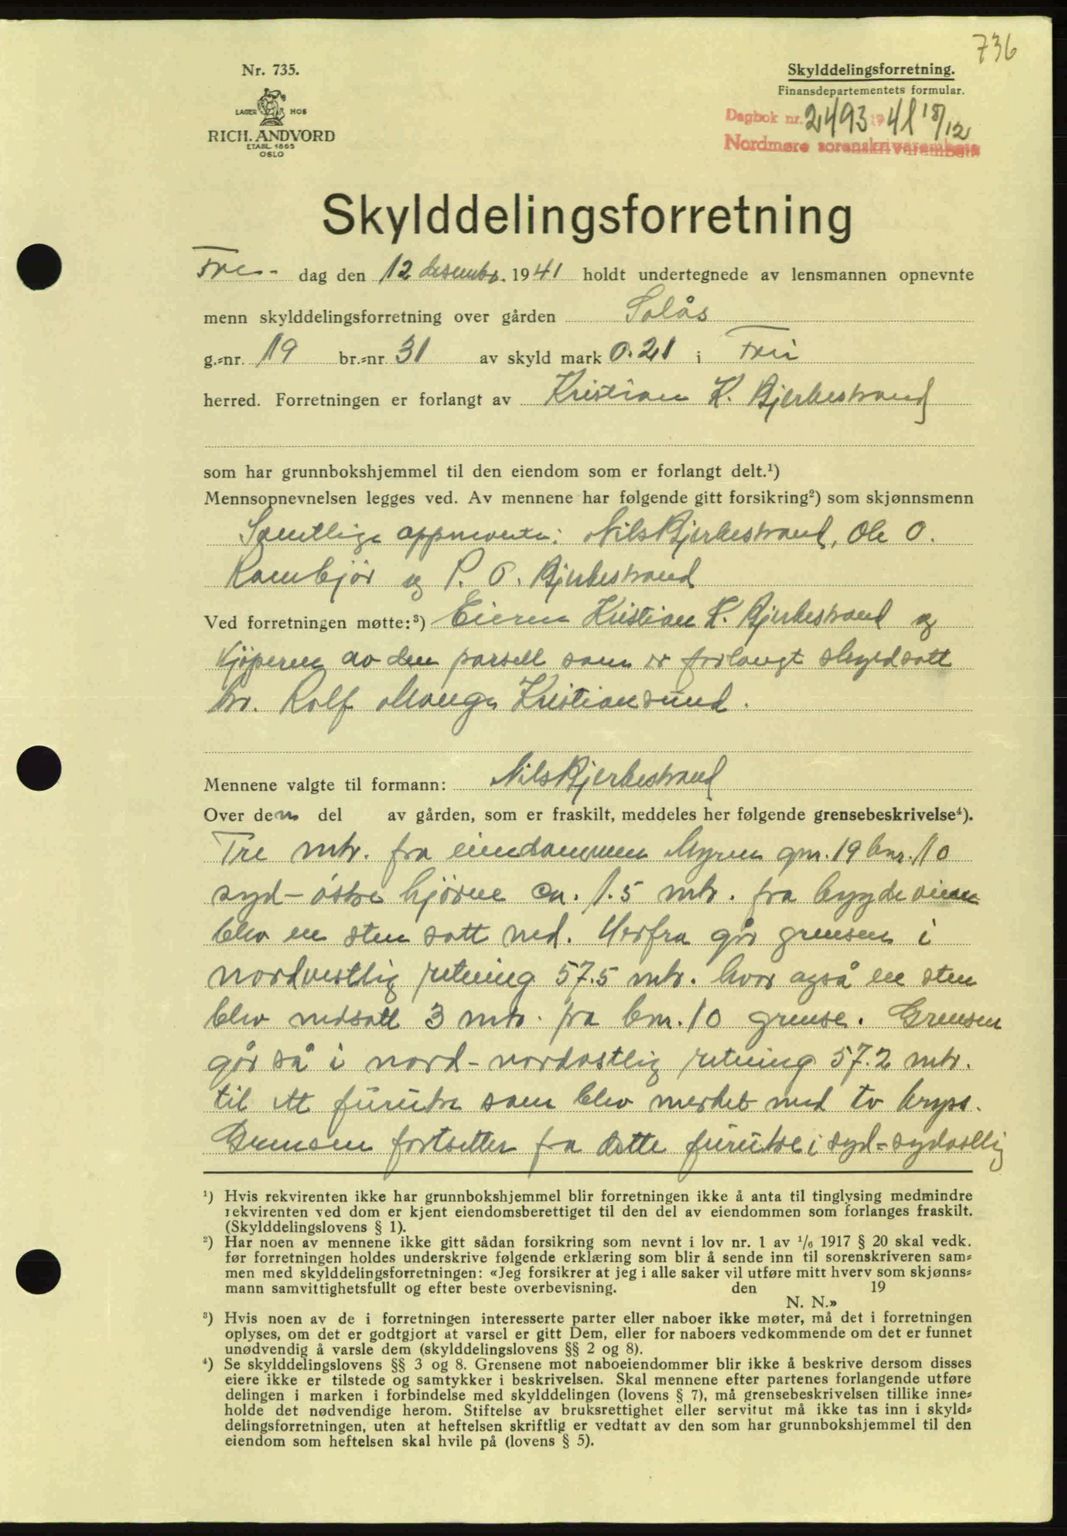 736
Nr. 735.
LAGER HOS
RICH. ANDVORD
ETABL. 1865
OSLO
Skylddelingsforretning.
Finansdepartementets formular.
Dagbok nr. 2493 1941 18/12
Nordmøre sorenskriverembete
Skylddelingsforretning
Fre- dag den 12 desembr. 1941 holdt undertegnede av lensmannen opnevnte
menn skylddelingsforretning over gården Solås
g.-nr. 19 br.-nr. 31 av skyld mark 0.21 i Frei
herred. Forretningen er forlangt av Kristian K. Bjerkestrand
som har grunnbokshjemmel til den eiendom som er forlangt delt.¹)
Mennsopnevnelsen legges ved. Av mennene har følgende gitt forsikring²) som skjønnsmenn
Samtlige oppnevnte: Nils Bjerkestrand, Ole O.
Rambjør og P. O. Bjerkestrand
Ved forretningen møtte:³) Eieren Kristian K. Bjerkestrand og
kjøperen av den parsell som er forlangt skyldsatt
hr. Rolf Mauge Kristiansund.
Mennene valgte til formann: Nils Bjerkestrand
Over den del av gården, som er fraskilt, meddeles her følgende grensebeskrivelse⁴).
Tre mtr. fra eiendommen Myren gnr. 19 bnr. 10
syd-østre hjørne ca. 1.5 mtr. fra bygdeveien
blev en sten satt ned. Herfra går grensen i
nordvestlig retning 57.5 mtr. hvor også en sten
blev nedsatt 3 mtr. fra bnr. 10 grense. Grensen
går så i nord-nordostlig retning 57.2 mtr.
til ett furutre som blev merket med to kryss.
Grensen fortsetter fra dette furutre i syd-sydostlig
¹) Hvis rekvirenten ikke har grunnbokshjemmel blir forretningen ikke å anta til tinglysing medmindre
rekvirenten ved dom er kjent eiendomsberettiget til den del av eiendommen som forlanges fraskilt.
(Skylddelingslovens § 1).
²) Har noen av mennene ikke gitt sådan forsikring som nevnt i lov nr. 1 av ¹/₆ 1917 § 20 skal vedk.
før forretningen holdes underskrive følgende erklæring som blir å sende inn til sorenskriveren sam-
men med skylddelingsforretningen: «Jeg forsikrer at jeg i alle saker vil utføre mitt hverv som skjønns-
mann samvittighetsfullt og efter beste overbevisning. den 19
N. N.»
³) Hvis noen av de i forretningen interesserte parter eller naboer ikke møter, må det i forretningen
oplyses, om det er godtgjort at varsel er gitt Dem, eller for naboers vedkommende om det er funnet
unødvendig å varsle dem (skylddelingslovens §§ 2 og 8).
⁴) Se skylddelingslovens §§ 3 og 8. Grensene mot naboeiendommer blir ikke å beskrive dersom disses
eiere ikke er tilstede og samtykker i beskrivelsen. Skal mennene efter partenes forlangende utføre
delingen i marken i forbindelse med skylddelingen (lovens § 7), må grensebeskrivelsen tillike inne-
holde det nødvendige herom. Stiftelse av bruksrettighet eller servitut må ikke tas inn i skyld-
delingsforretningen, uten at heftelsen skriftlig er vedtatt av den som har grunnbokshjemmel til den
eiendom som heftelsen skal hvile på (lovens § 5).